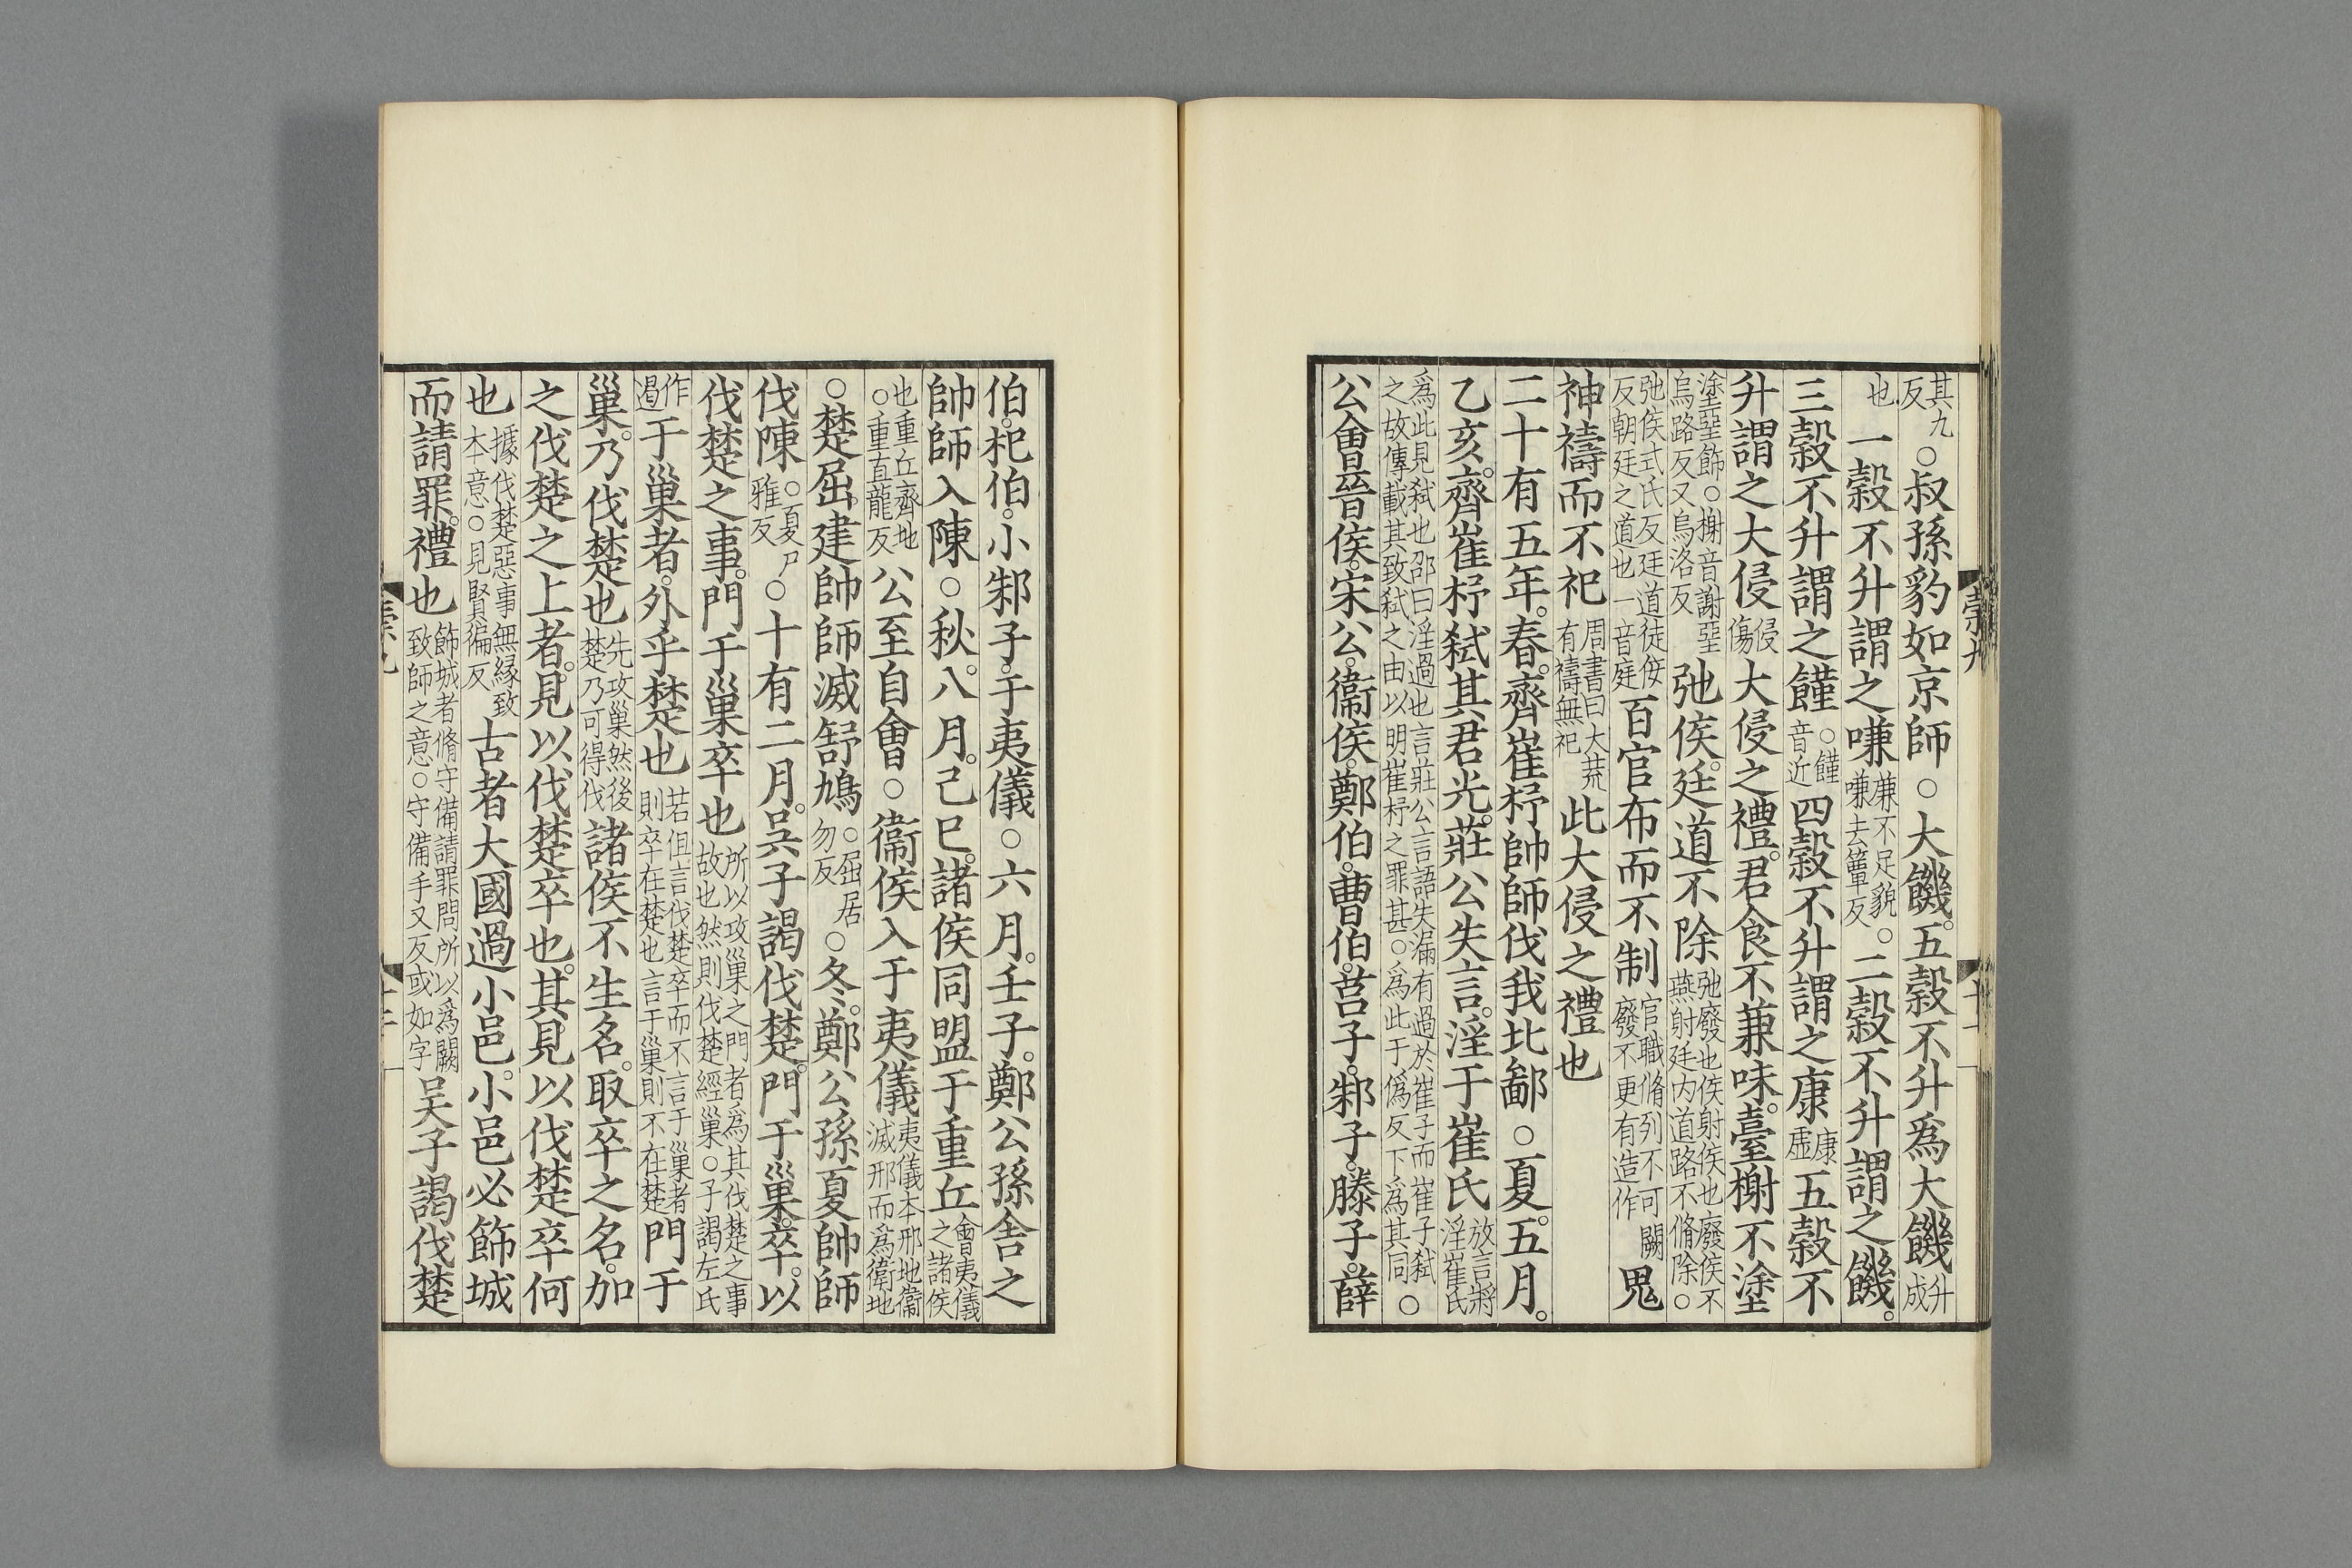 其九反○叔孫豹如京師○大饑。五穀不升爲大饑升成
也一穀不升謂之嗛嗛不足貌。嗛去簟反二穀不升謂之饑。
三穀不升謂之饉○饉音近四穀不升謂之康康虛五穀不
升謂之大侵侵傷大侵之禮。君食不兼味。臺榭不塗
塗堊飾○榭音謝堊烏路反又烏洛反弛侯。廷道不除弛廢也侯射侯也廢侯不燕射廷内道路不脩除○
弛侯式氏反廷道徒佞反朝廷之道也一音庭百官布而不制官職脩列不可闕廢不更有造作鬼
神禱而不祀周書曰大荒有禱無祀此大侵之禮也
二十有五年。春。齊崔杼帥師伐我北鄙○夏。五月。
乙亥。齊崔杼弒其君光。莊公失言。淫于崔氏放言將淫崔氏
爲此見弒也邵曰淫過也言莊公言語失漏有過於崔子而崔子弒之故傳載其致弒之由以明崔杼之罪甚○爲此于僞反下爲其同○
公會晉侯。宋公。衞侯。鄭伯。曹伯。莒子。邾子。滕子。薛
崇九
十一
伯。杞伯。小邾子。于夷儀○六月。壬子。鄭公孫舍之
帥師入陳○秋。八月。己巳。諸侯同盟于重丘會夷儀之諸侯
也重丘齊地○重直龍反公至自會○衞侯入于夷儀夷儀本邢地衞滅邢而爲衞地
○楚屈。建帥師滅舒鳩○屈居勿反○冬。鄭公孫夏帥師
伐陳○夏戸雅反○十有二月。吳子謁伐楚。門于巢。卒。以
伐楚之事。門于巢卒也所以攻巢之門者爲其伐楚之事故也然則伐楚經巢○子謁左氏
作遏于巢者。外乎楚也若但言伐楚卒而不言于巢者則卒在楚也言于巢則不在楚門于
巢。乃伐楚也先攻巢然後楚乃可得伐諸侯不生名。取卒之名。加
之伐楚之上者。見以伐楚卒也。其見以伐楚卒何
也據伐楚惡事無緣致本意○見賢徧反古者大國過小邑。小邑必飾城
而請罪。禮也飾城者脩守備請罪問所以爲闕致師之意○守備手又反或如字吳子謁伐楚